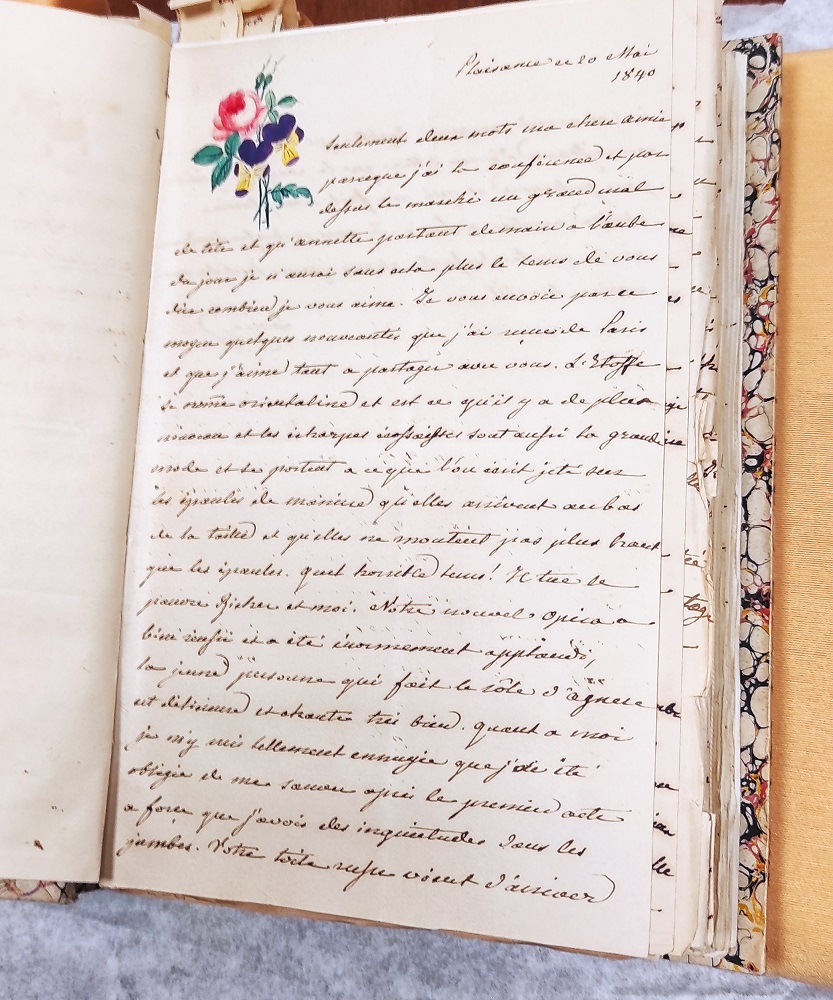 Plaisance ce 20 Mai
1840
Seulement deux mots ma chere amie
parceque j'ai la conférence et par
dessus le marché un grand mal
de tête et qu'annette partant demain a l'aube
du jour je n'aurai sans cela plus le tems de vous
dire combien je vous aime. Je vous envoie par ce
moyen quelques nouveautés que j'ai recues de Paris
et que j'aime tant a partager avec vous. L'Etoffe
se nomme orientaline et est ce qu'il y a de plus
nouveau et les écharpes écossaises sont aussi la grande
mode et se portent a ce que l'on écrit jeté sur
les épaules de maniere qu'elles arrivent au bas
de la taille et qu'elles ne montent pas plus haut
que les épaules. quel horrible tems! Il tue le
pauvre Richer et moi. Notre nouvel Opera a
bien reussi et a été énormement applaudi,
la jeune personne qui fait le rôle d'agnese
est delicieuse et chante tres bien. quant a moi
je m'y suis tellement ennuyée que j'ai été
obligée de me sauver après le premier acte
a force que j'avois des inquietudes dans les
jambes. Votre toile vient d'arriver